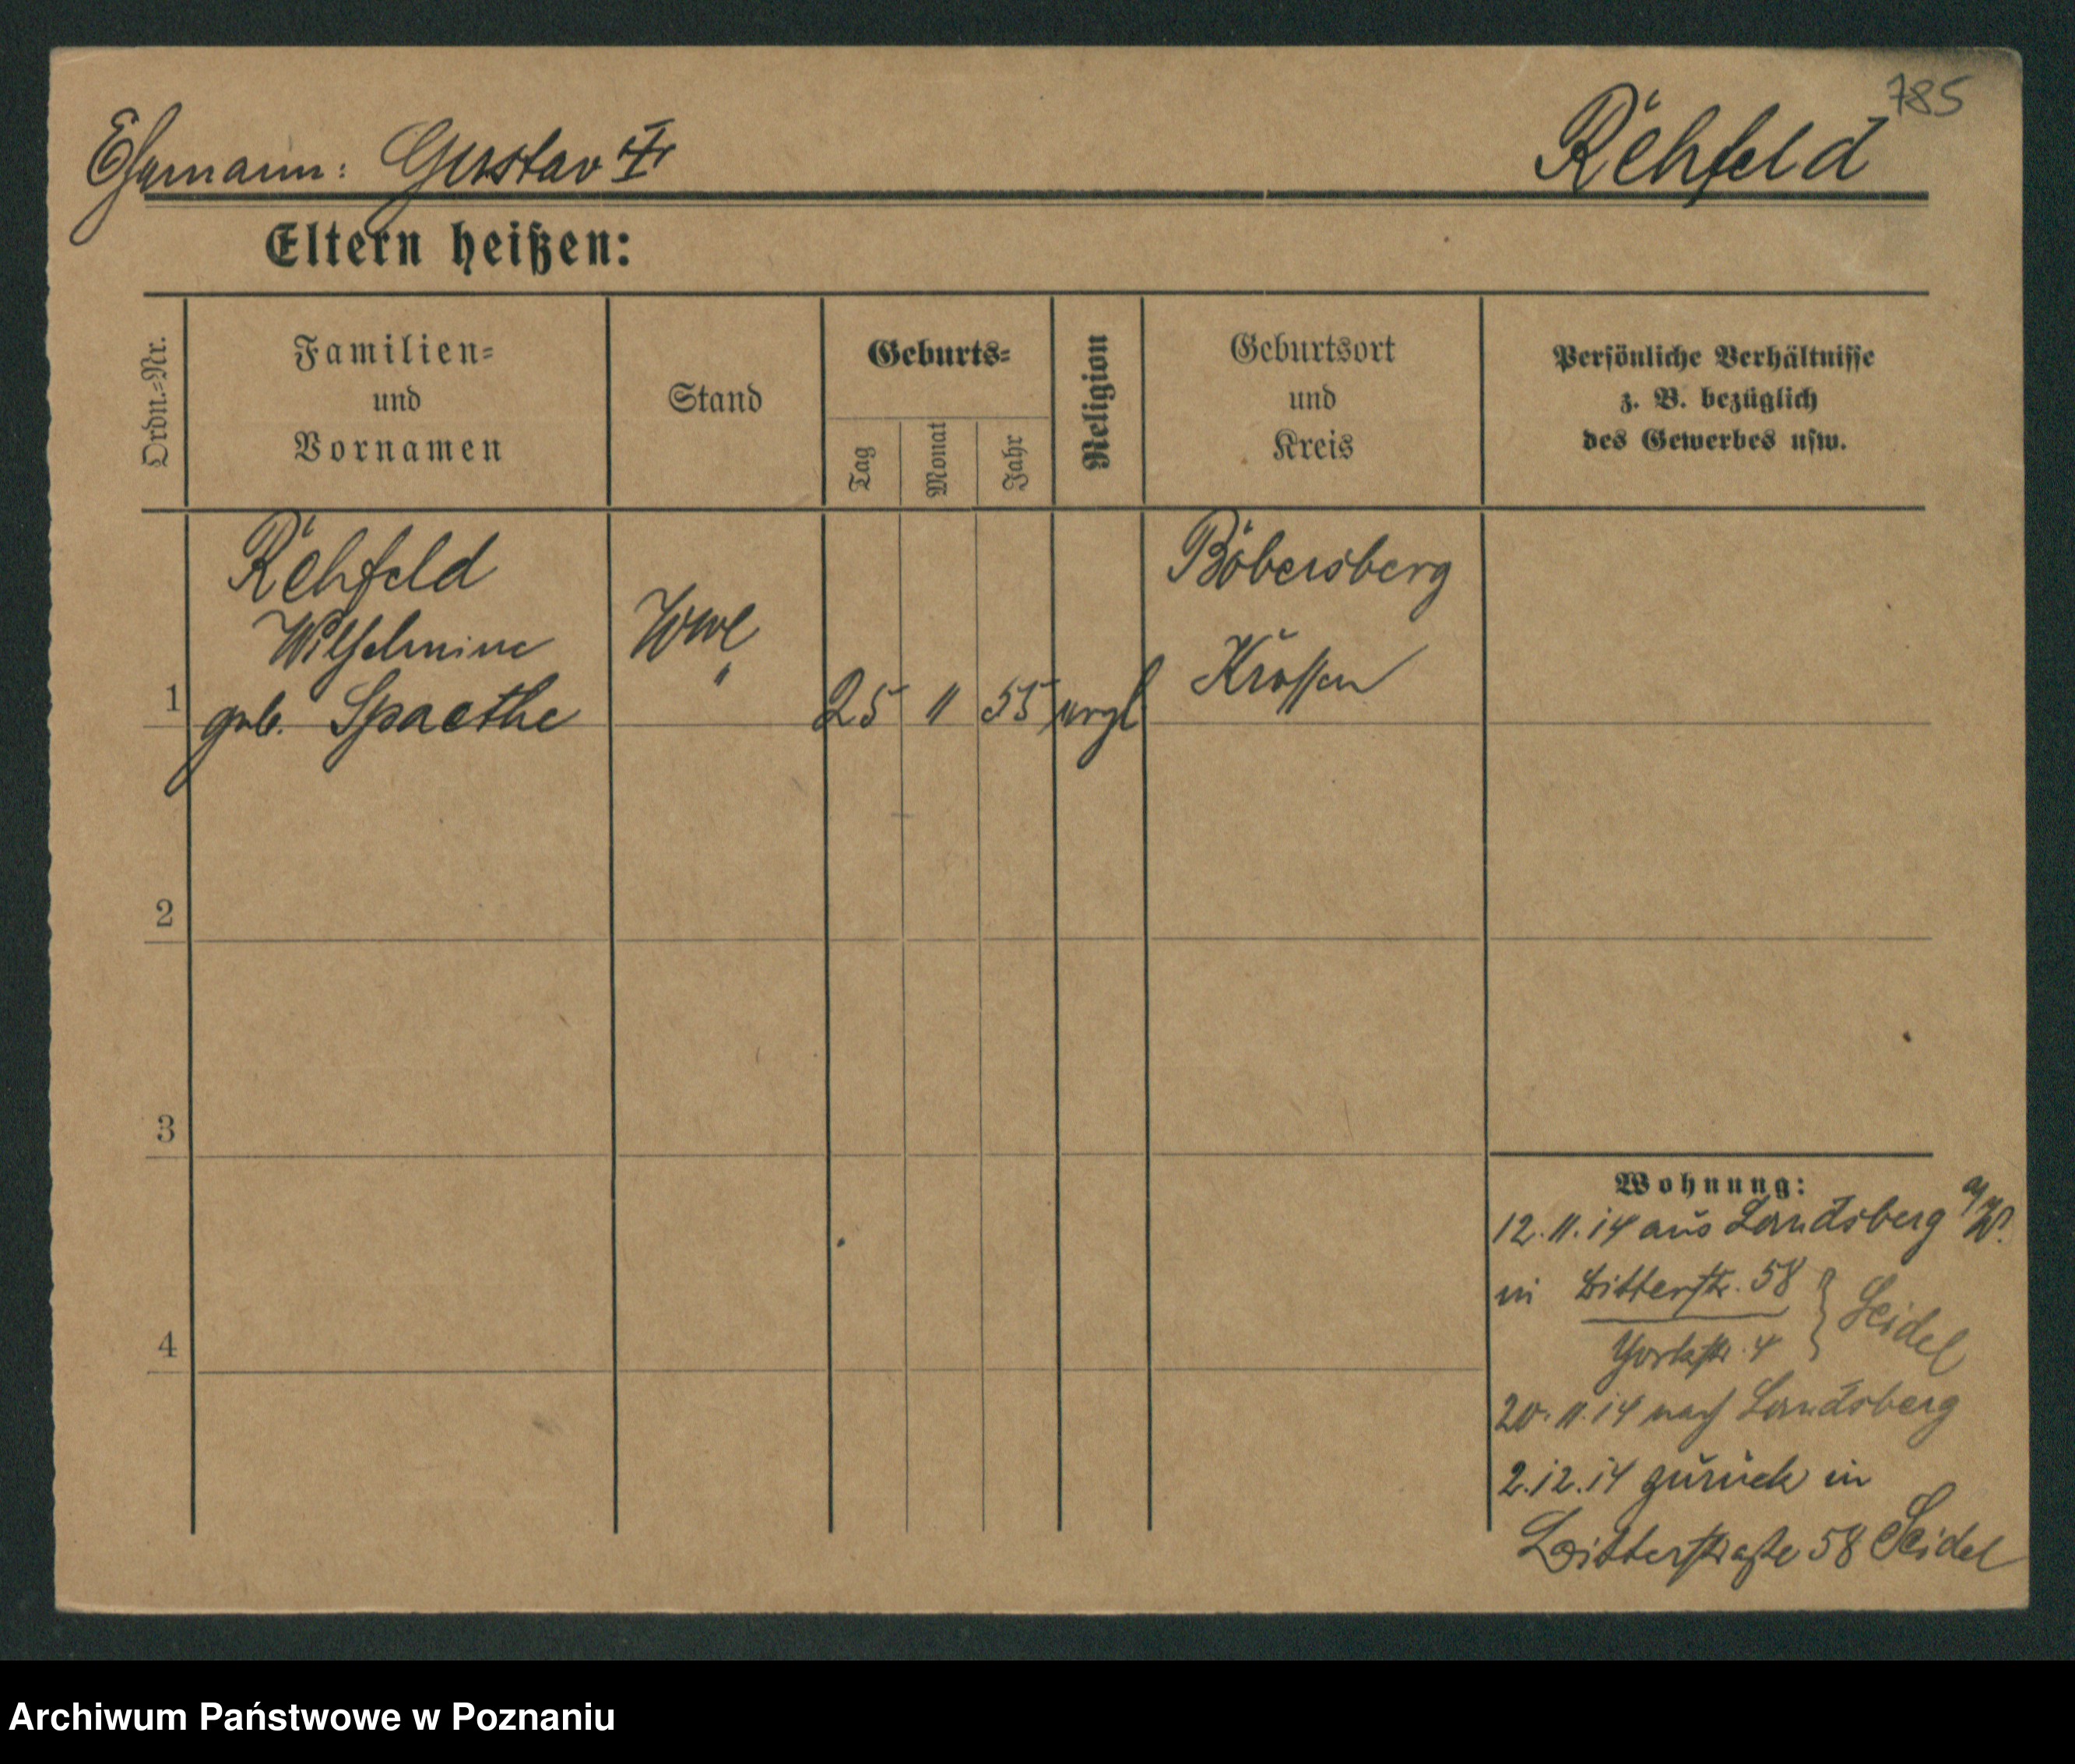 785
Ehemann: Gustav † Rehfeld
Eltern heißen:
Ordn.-Nr.
Familien-
und
Vornamen
Stand
Geburts-
Tag
Monat
Jahr
Religion
Geburtsort
und
Kreis
Persönliche Verhältnisse
z. B. bezüglich
des Gewerbes usw.
1
Rehfeld
Wilhelmine
geb. Spaethe
Wwe
"
25
11
55
evgl
Bobersberg
Krossen
2
3
4
Wohnung:
12.11.14 aus Landsberg a/W.
in Ritterstr. 58
Yorkstr. 4 } Seidel
20.11.14 nach Landsberg
2.12.14 zurück in
Ritterstraße 58 Seidel
Archiwum Państwowe w Poznaniu